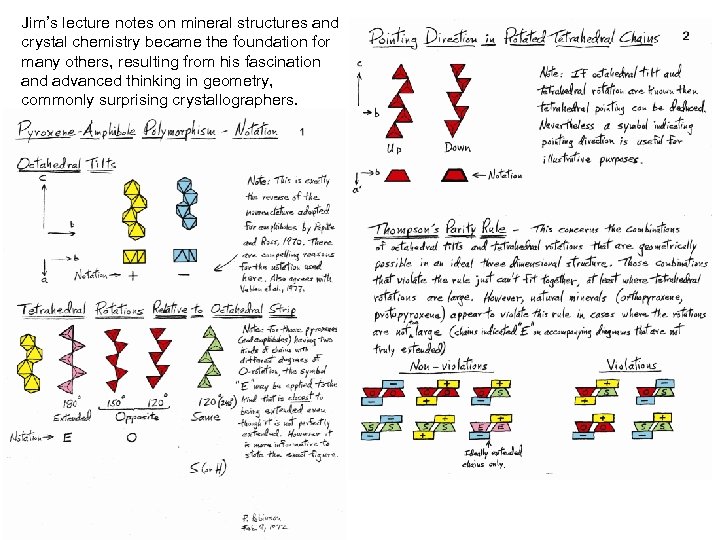 Jim's lecture notes on mineral structures and
crystal chemistry became the foundation for
many others, resulting from his fascination
and advanced thinking in geometry,
commonly surprising crystallographers.
Pyroxene-Amphibole Polymorphism - Notation 1
Octahedral Tilts
c
b
b
a
Notation → + −
Note: This is exactly
the reverse of the
nomenclature adopted
for amphiboles by Papike
and Ross, 1970. There
are compelling reasons
for the notation used
here. Also agrees with
et al., 1973.
Tetrahedral Rotations Relative to Octahedral Strip
180° 150° 120° 120°
Extended Opposite Same
Notation → E O
S (or H)
Note: For those pyroxenes
(and amphiboles) having two
kinds of chains with
different degrees of
O-rotation, the symbol
"E" may be applied to the
kind that is closest to
being extended even
though it is not perfectly
extended. However it
is more informative to
state the exact figure.
P. Robinson
Pointing Direction in Rotated Tetrahedral Chains 2
c
b
Up Down
b
a'
← Notation
Note: If octahedral tilt and
tetrahedral rotation are known then
tetrahedral pointing can be deduced.
Nevertheless a symbol indicating
pointing direction is useful for
illustrative purposes.
Thompson's Parity Rule - This concerns the combinations
of octahedral tilts and tetrahedral rotations that are geometrically
possible in an ideal three dimensional structure. Those combinations
that violate the rule just can't fit together, at least where tetrahedral
rotations are large. However, natural minerals (orthopyroxene,
protopyroxene) appear to violate this rule in cases where the rotations
are not large (chains indicated "E" in accompanying diagrams that are not
truly extended)
Non-violations Violations
Ideally extended
chains only.